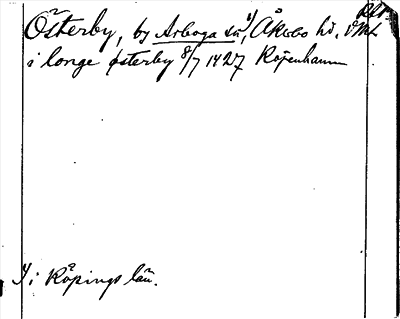 Österby, by Arboga sn, 1/ Åkerbo hd. Vstm
i longe østerby 8/7 1427 Köpenhamn
1/ i Köpings län.